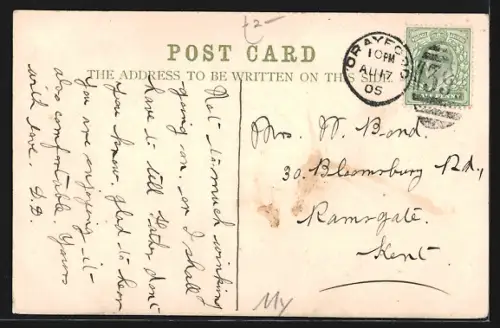 £2-
POST CARD
THE ADDRESS TO BE WRITTEN ON THIS SIDE
CRAYFORD
10 PM
AU 17
05
Not to much winking
going on, or I shall
have to tell Father don't
you know, glad to hear
you are enjoying it
also comfortable. Yours
with love.
Mrs. W. Bond.
30. Bloomsbury Rd,
Ramsgate.
Kent.